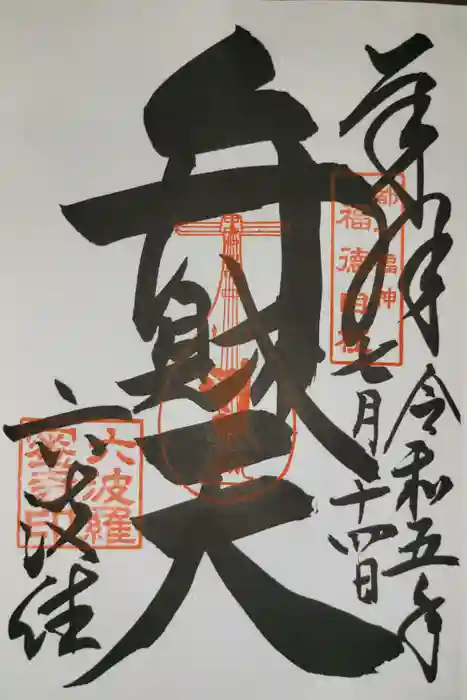 奉拝
令和五年
七月十四日
都七福神
福徳自在
弁財天
六波羅
六波羅
蜜寺印